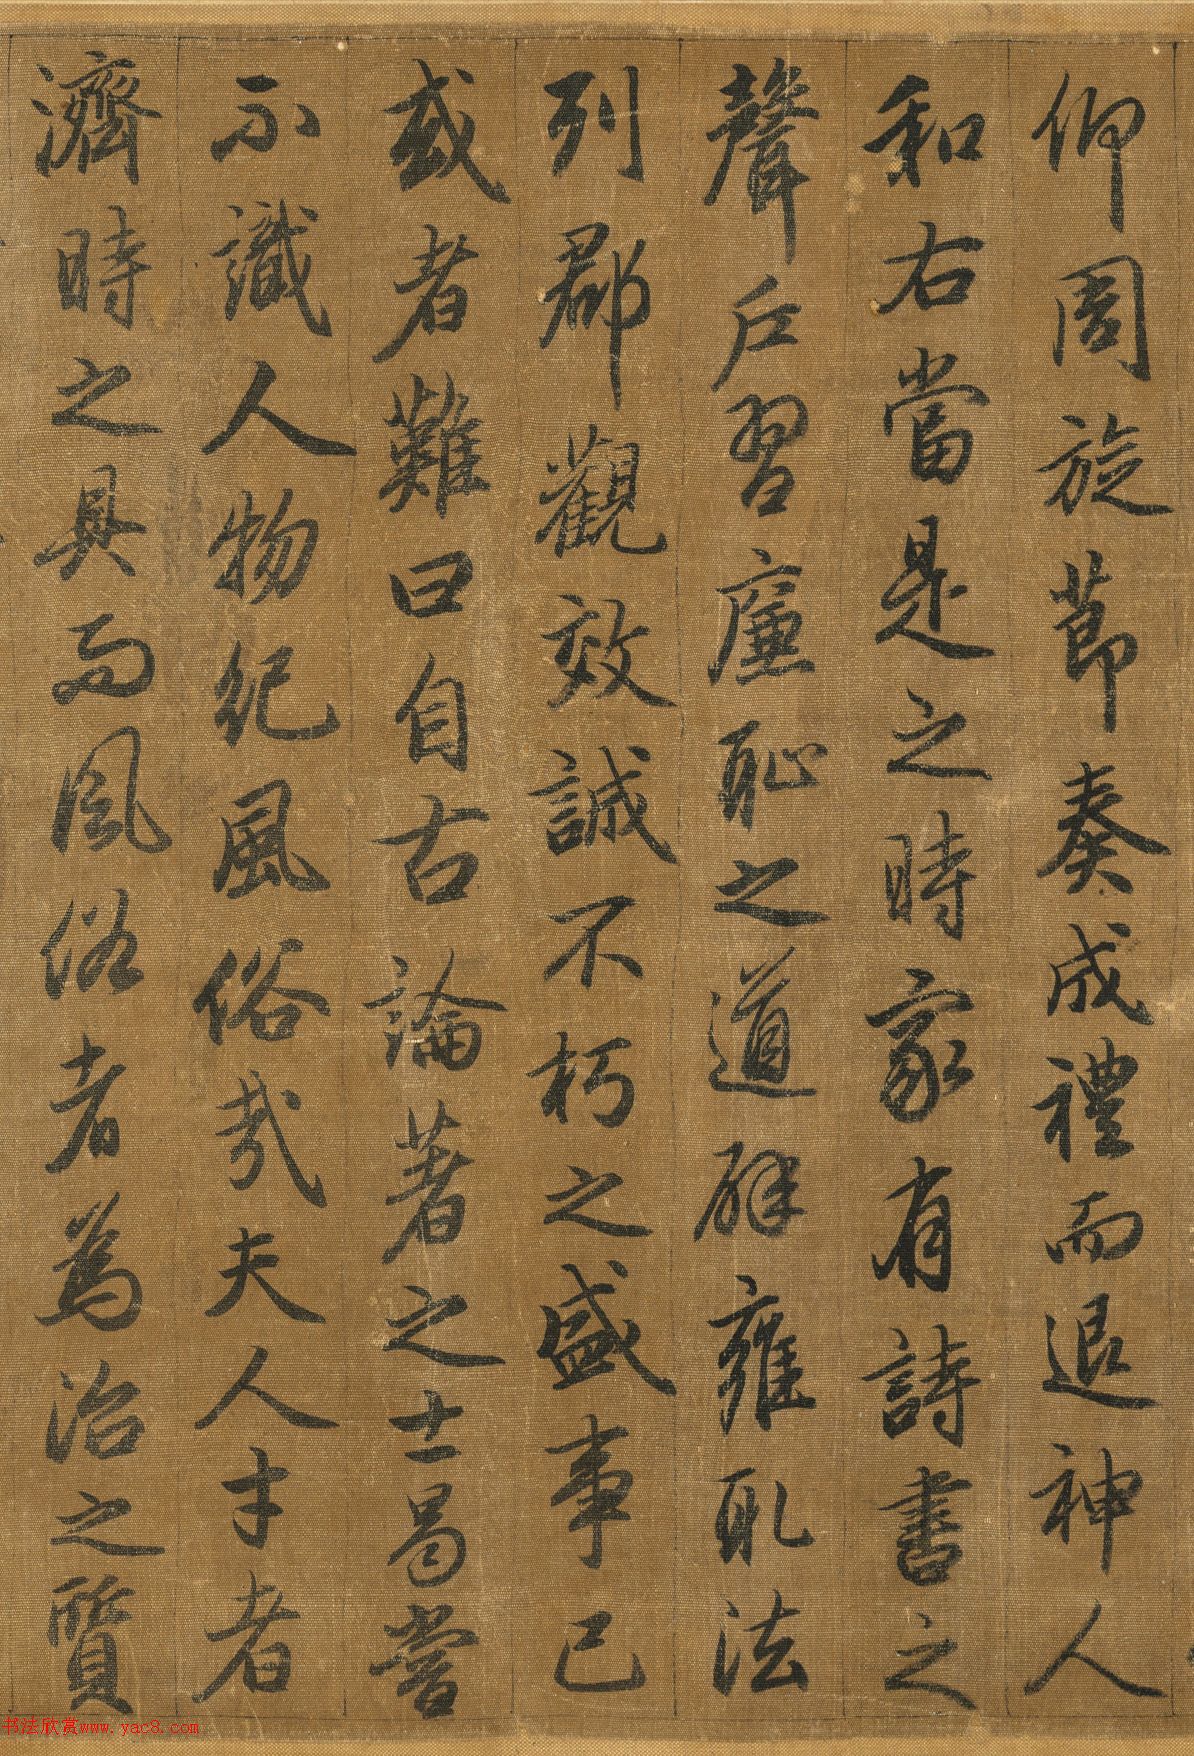 仰周旋節奏成禮而退神人
和右當是之時家有詩書之
聲户習廉恥之道辟雍取法
列郡觀效誠不朽之盛事已
或者難曰自古論著之士曷嘗
不識人物紀風俗哉夫人才者
濟時之具而風俗者為治之質
书法欣赏www.yac8.com